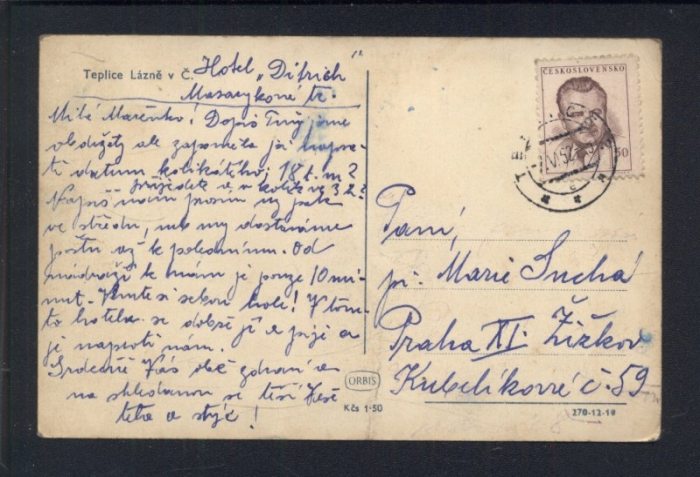 Teplice Lázně v Č. Hotel „Difrich“
Masarykové tř.
Milá Mařenko! Dopis Tvůj jsme
obdržely ale zapoměla jsi napsa-
ti datum kolikátého, 18 t. m?
přijedete a v kolik ve 3 2?
Napiš nám prosím
ve středu, my dostáváme
poštu až k polednímu. Od
nádraží k nám je pouze 10 mi-
nut. Vemte si sebou hole! V tom-
to hotelu se dobře jí a pije a
je naproti nám.
Srdečně Vás obě zdraví a
na shledanou se těší Vaše
teta a strýc!
ORBIS
Kčs 1·50
ČESKOSLOVENSKO
50
Paní,
pí. Marie Suchá
Praha XI. Žižkov
Kubelíkové č. 59
270-12-19